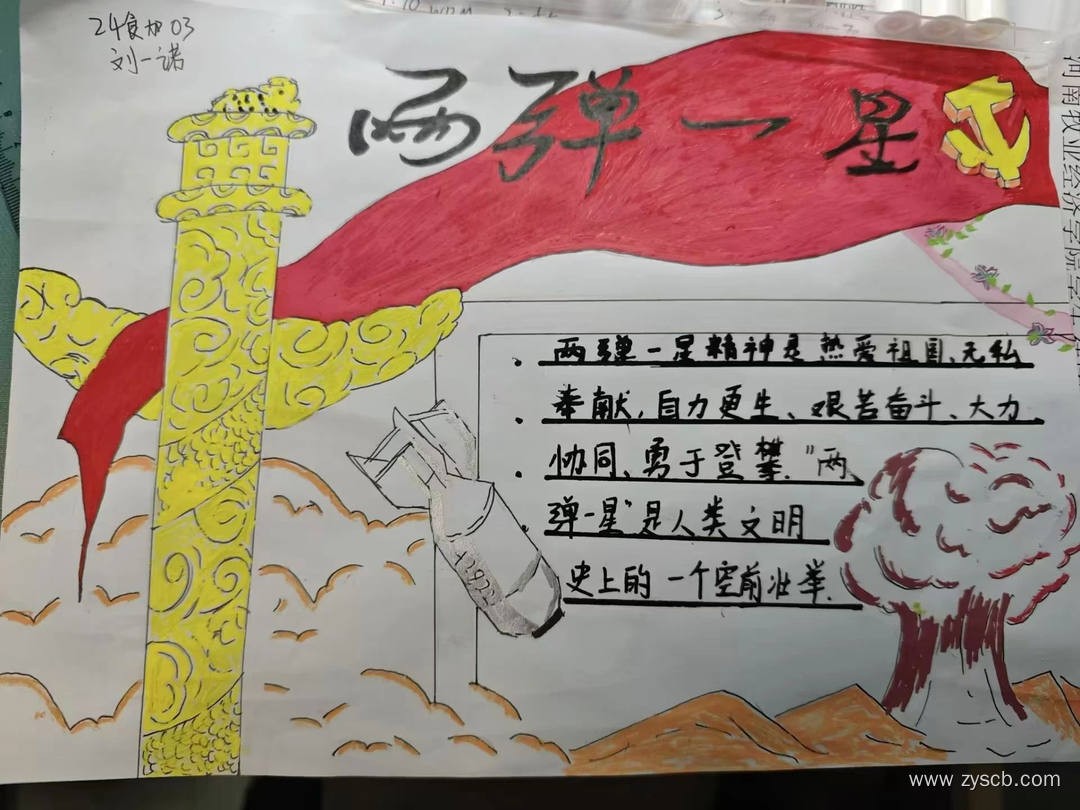 24食加03
刘一诺
两弹一星
两弹一星精神是热爱祖国、无私
奉献,自力更生、艰苦奋斗、大力
协同、勇于登攀."两
弹一星"是人类文明
史上的一个空前壮举.
www.zyscb.com